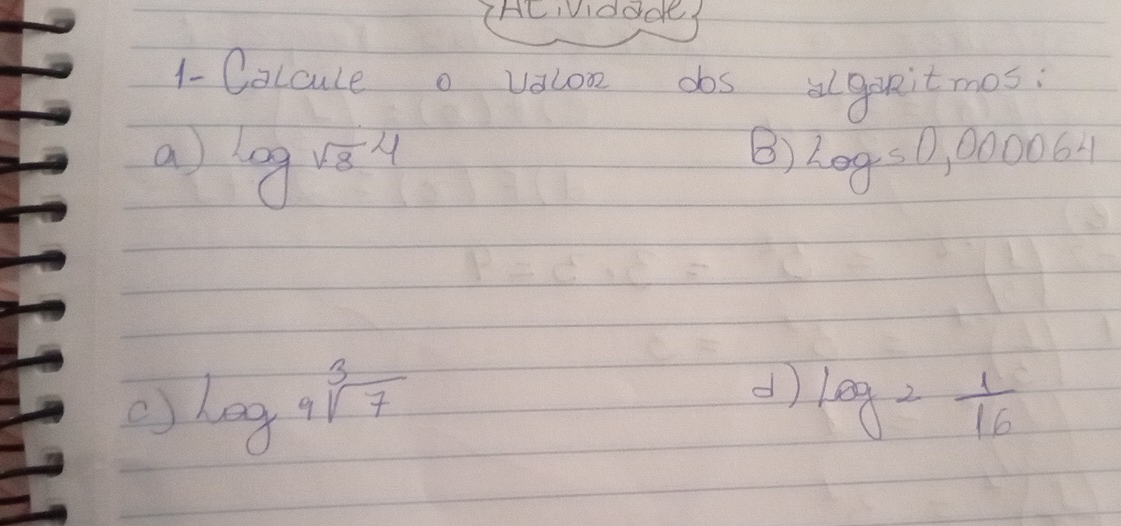 {Atividade}
1- Calcule o valor dos algaritmos:
a) Log √8 4 B) Log 5 0,000064
c) Log 9 ∛7 d) Log 2 1/16